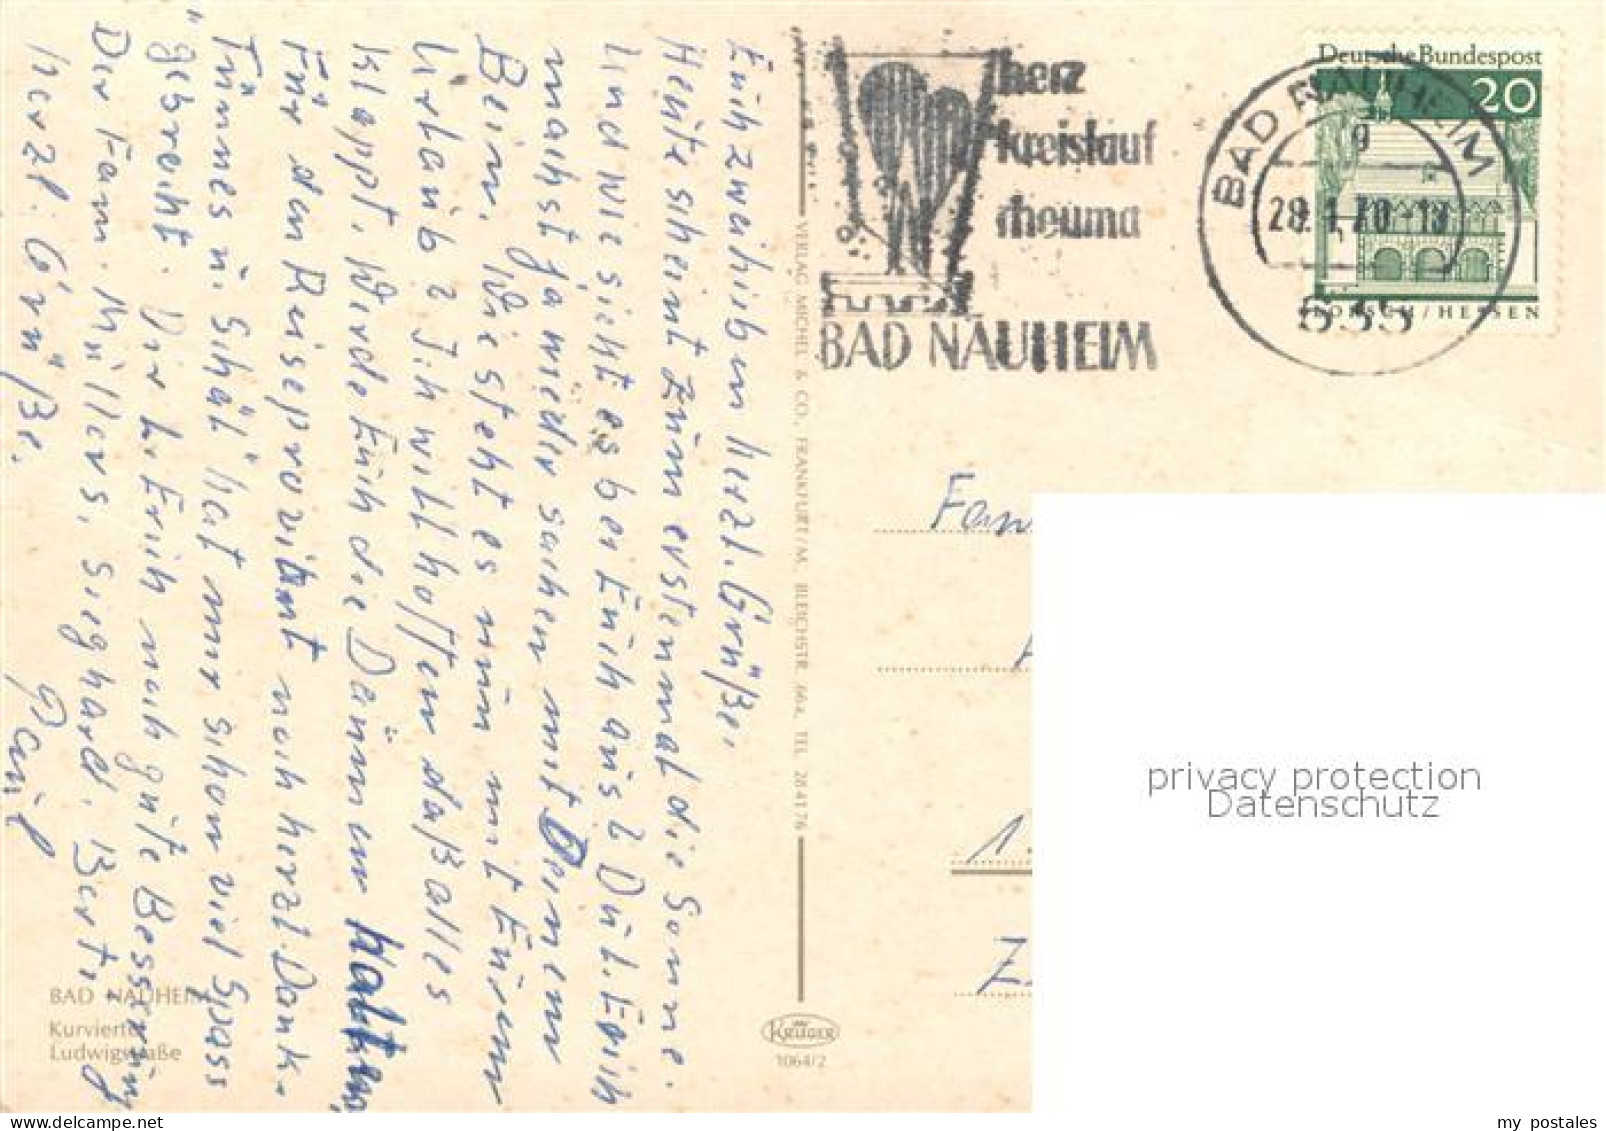 Euch zweihiben herzl. Grüße,
Heute scheint zum erstenmal die Sonne.
Und wie sieht es bei Euch aus? Du l. Erich
machst ja wieder sachen mit Deinem
Bein. Wie steht es nun mit Eurem
Urlaub? Ich will hoffen daß alles
klappt. Werde Euch die Däumem halten,
Für den Reiseproviant noch herzl. Dank.
Tünnes u. Schäl" hat mir schon viel Spass
"gebracht. Dir l. Erich noch gute Besserung
Der Fam. Müllers, Sieghard, Bertig
herzl. Grüße.
Paul
BAD NAUHEIM
Kurviertel
Ludwigstraße
VERLAG MICHEL & CO., FRANKFURT/M. BLEICHSTR. 66a, TEL. 28 41 76
KRÜGER
1064/2
herz
kreislauf
rheuma
BAD NAUHEIM
Deutsche Bundespost
20
LORSCH/HESSEN
BAD NAUHEIM
g
28.1.70-18
635
Fam
privacy protection
Datenschutz
my postales